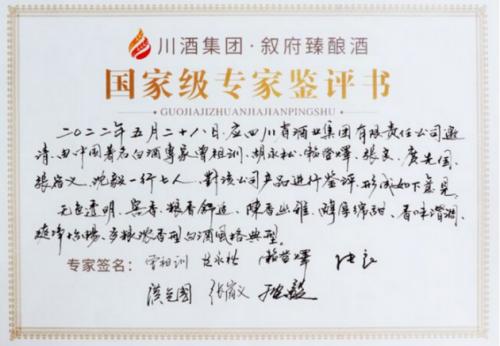 川酒集团·叙府臻酿酒
国家级专家鉴评书
GUOJIAJIZHUANJIAJIANPINGSHU
二〇二二年五月二十八日,应四川省酒业集团有限责任公司邀
请,由中国著名白酒专家曾祖训、胡永松、赖登燡、张良、庹先国、
张宿义、沈毅一行七人,對该公司产品进行鉴评,形成如下意见:
无色透明、窖香、粮香舒适、陈香幽雅、醇厚绵甜、香味谐调、
爽净怡畅、多粮浓香型白酒风格典型。
专家签名: 曾祖训 胡永松 赖登燡 张良
庹先国 张宿义 沈毅